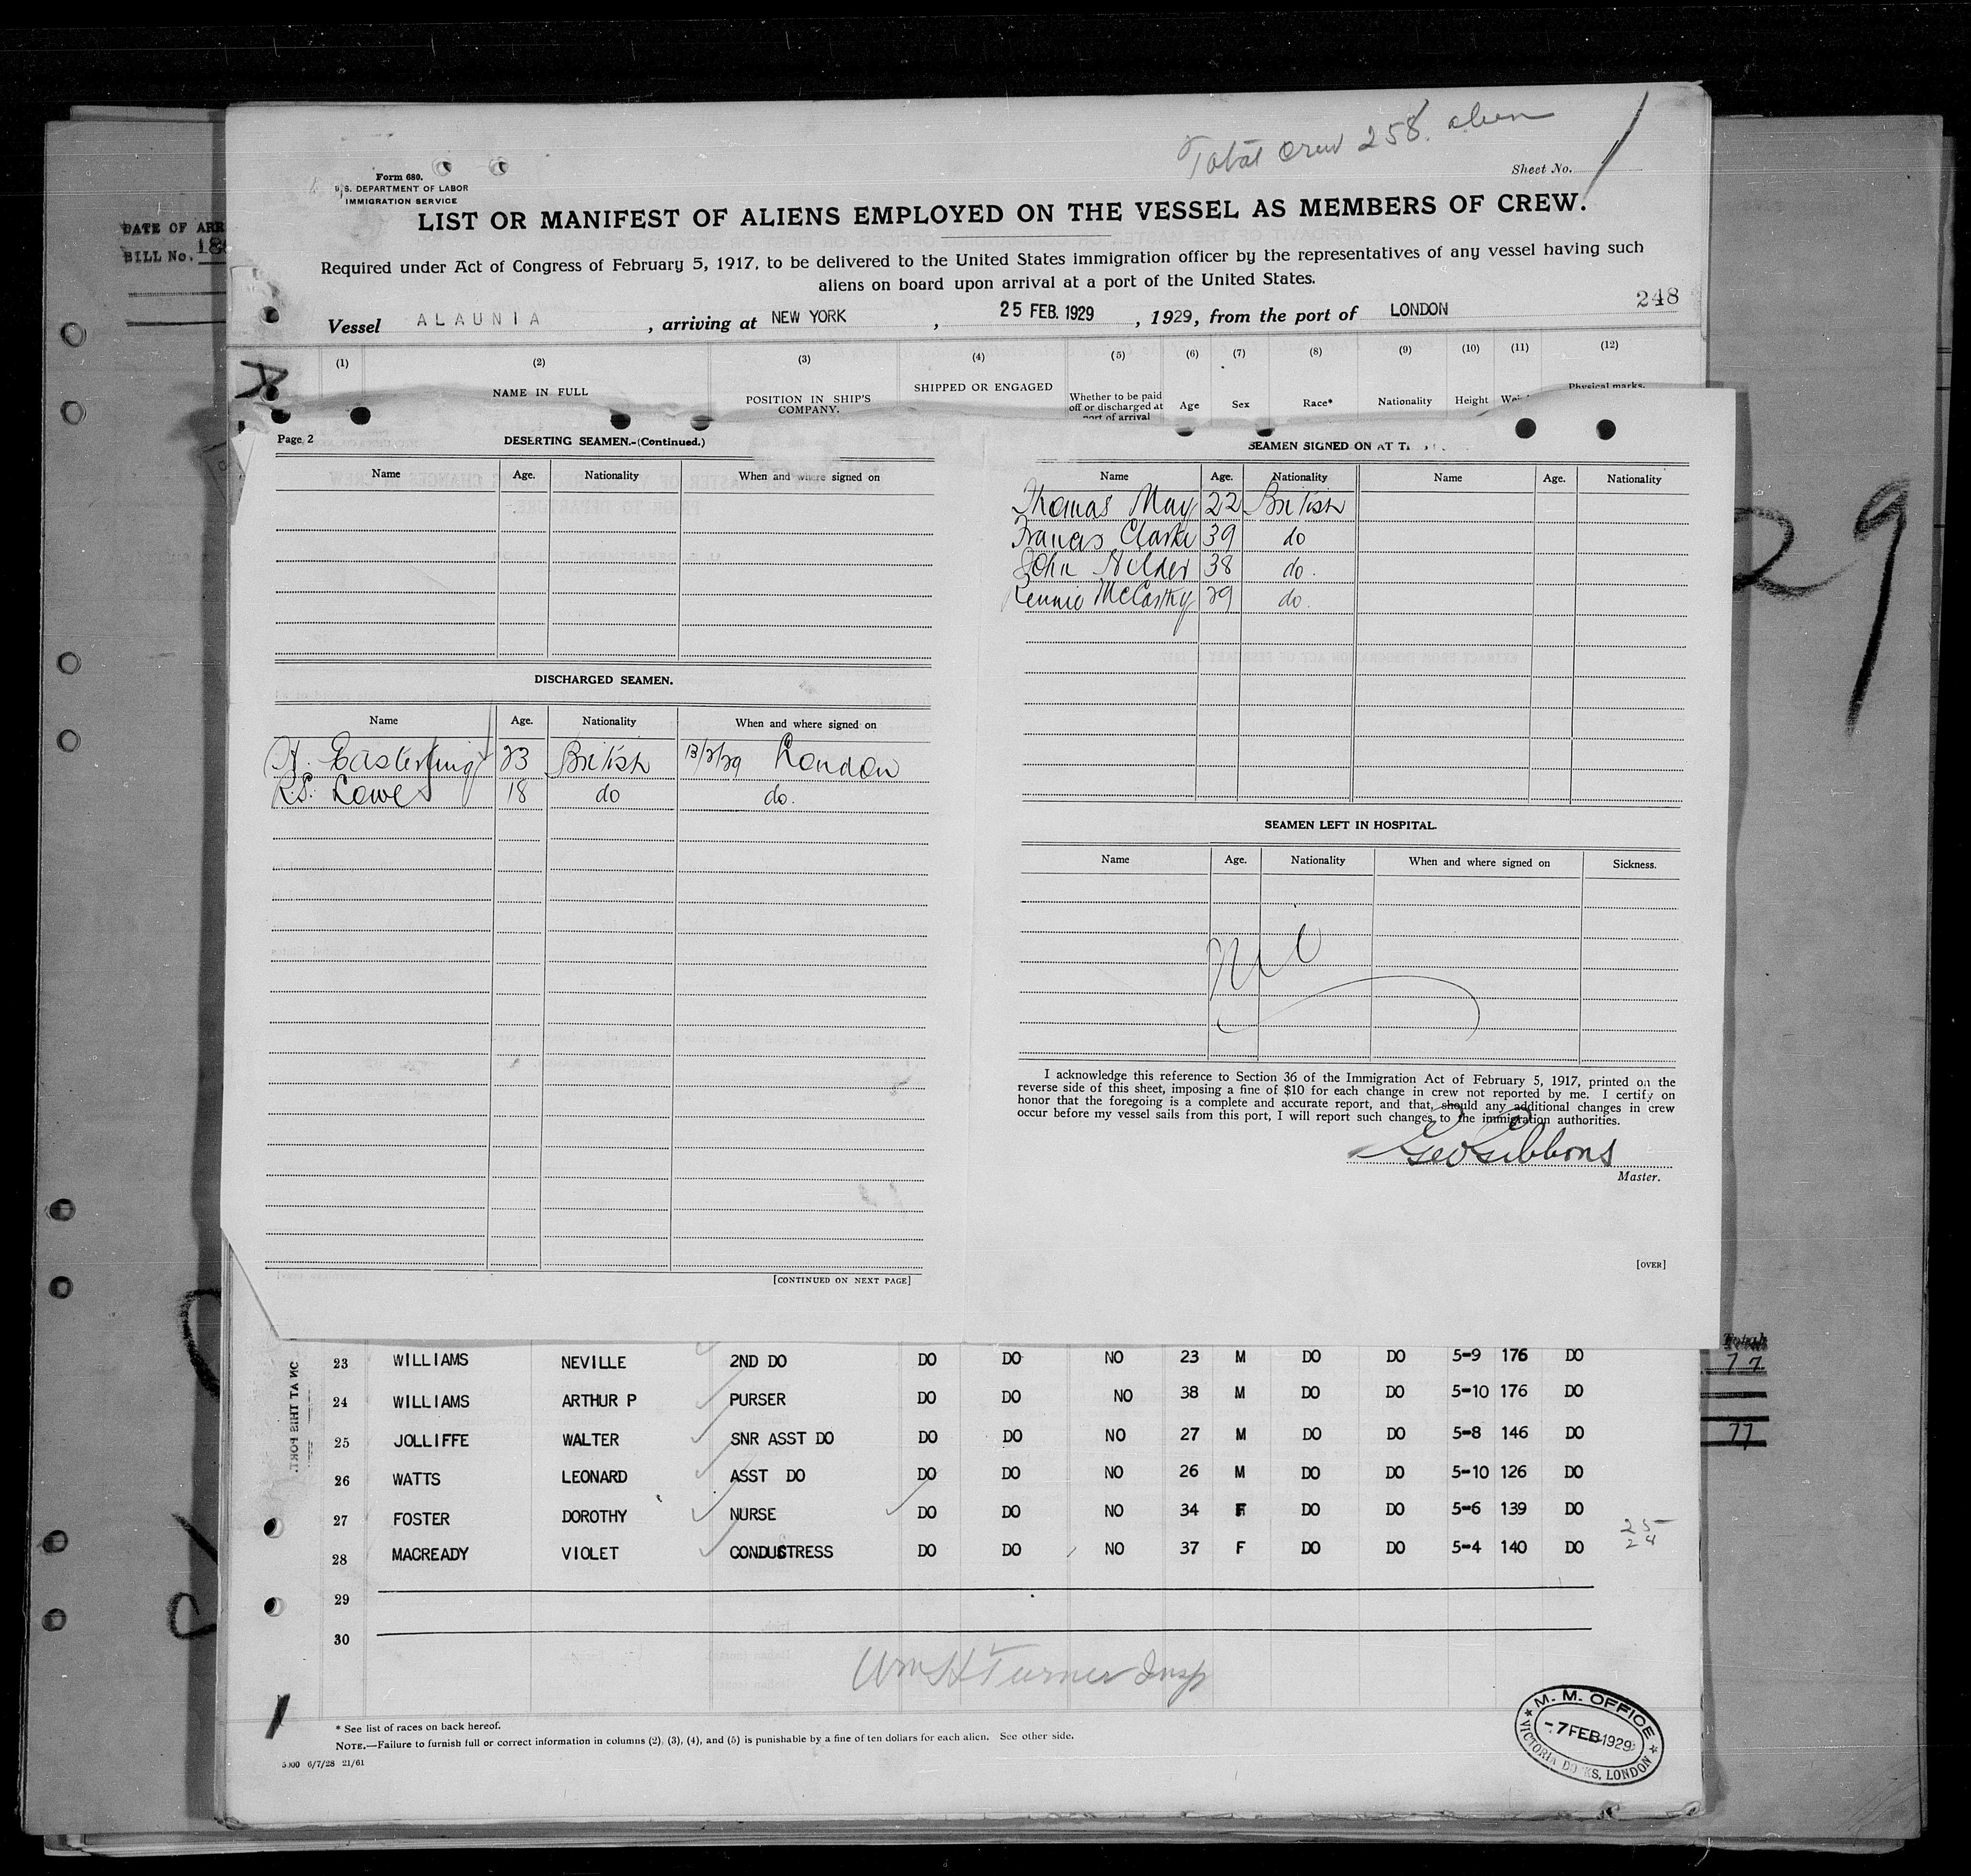 Total crew 258. alien
Form 680.
U.S. DEPARTMENT OF LABOR
IMMIGRATION SERVICE
Sheet No. 1
LIST OR MANIFEST OF ALIENS EMPLOYED ON THE VESSEL AS MEMBERS OF CREW.
Required under Act of Congress of February 5, 1917, to be delivered to the United States immigration officer by the representatives of any vessel having such
aliens on board upon arrival at a port of the United States.
248
Vessel ALAUNIA, arriving at NEW YORK, 25 FEB. 1929, 1929, from the port of LONDON
DATE OF ARR
BILL No. 18
(1) (2) (3) (4) (5) (6) (7) (8) (9) (10) (11) (12)
NAME IN FULL POSITION IN SHIP'S COMPANY. SHIPPED OR ENGAGED Whether to be paid off or discharged at port of arrival Age Sex Race* Nationality Height Physical marks,
Page 2
DESERTING SEAMEN.-(Continued.)
Name Age. Nationality When and where signed on
DISCHARGED SEAMEN.
Name Age. Nationality When and where signed on
A. Easterling 23 British 13/2/29 London
R.S. Lowe 18 do do.
[CONTINUED ON NEXT PAGE]
SEAMEN SIGNED ON AT
Name Age. Nationality Name Age. Nationality
Thomas May 22 British
Francis Clarke 39 do
John 38 do.
McCarthy 29 do.
SEAMEN LEFT IN HOSPITAL.
Name Age. Nationality When and where signed on Sickness.
Nil
I acknowledge this reference to Section 36 of the Immigration Act of February 5, 1917, printed on the
reverse side of this sheet, imposing a fine of $10 for each change in crew not reported by me. I certify on
honor that the foregoing is a complete and accurate report, and that, should any additional changes in crew
occur before my vessel sails from this port, I will report such changes to the immigration authorities.
Geo Gibbons
Master.
[OVER]
29
77
77
23 WILLIAMS NEVILLE 2ND DO DO DO NO 23 M DO DO 5-9 176 DO
24 WILLIAMS ARTHUR P PURSER DO DO NO 38 M DO DO 5-10 176 DO
25 JOLLIFFE WALTER SNR ASST DO DO DO NO 27 M DO DO 5-8 146 DO
26 WATTS LEONARD ASST DO DO DO NO 26 M DO DO 5-10 126 DO
27 FOSTER DOROTHY NURSE DO DO NO 34 F DO DO 5-6 139 DO
28 MACREADY VIOLET CONDUSTRESS DO DO NO 37 F DO DO 5-4 140 DO
25
24
29
30
Wm H Turner Insp
* See list of races on back hereof.
NOTE.—Failure to furnish full or correct information in columns (2), (3), (4), and (5) is punishable by a fine of ten dollars for each alien. See other side.
5000 6/7/28 21/61
M. M. OFFICE
-7 FEB 1929
VICTORIA DOCKS, LONDON